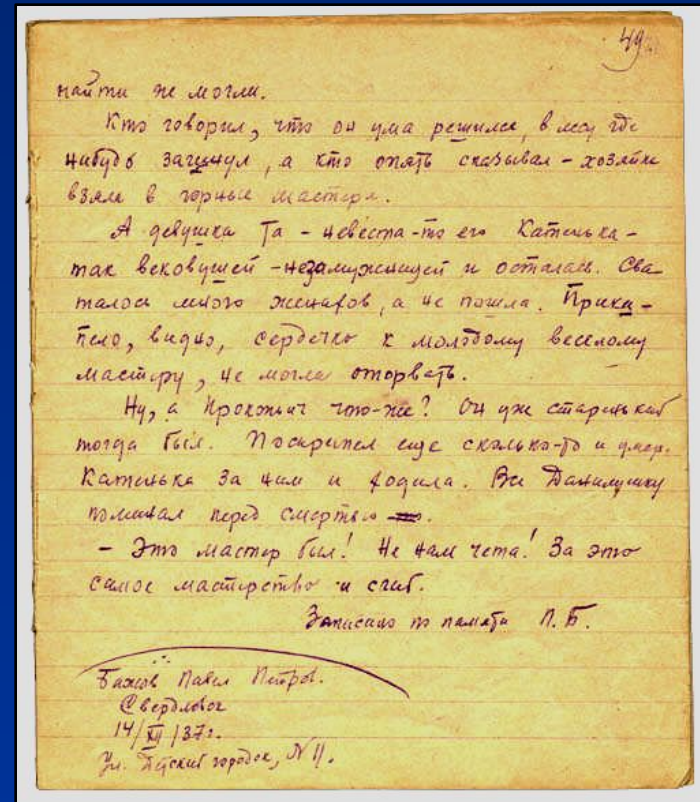 49
найти не могли.
Кто говорил, что он ума решился, в лесу где
нибудь загинул, а кто опять сказывал - хозяйка
взяла в горные мастера.
А девушка та - невеста-то его Катенька -
так вековушей - незамужницей и осталась. Сва-
талось много женихов, а не пошла. Прики-
пело, видно, сердечко к молодому веселому
мастеру, не могла оторвать.
Ну, а Прокопьич что-же? Он уже старенький
тогда был. Поскрипел еще сколько-то и умер.
Катенька за ним и ходила. Все Данилушку
поминал перед смертью.
- Это мастер был! Не нам чета! За это
самое мастерство и сгиб.
Записано по памяти П. Б.
Бажов Павел Петров.
Свердловск
14/XII/37г.
Ул. Детский городок, N 11.